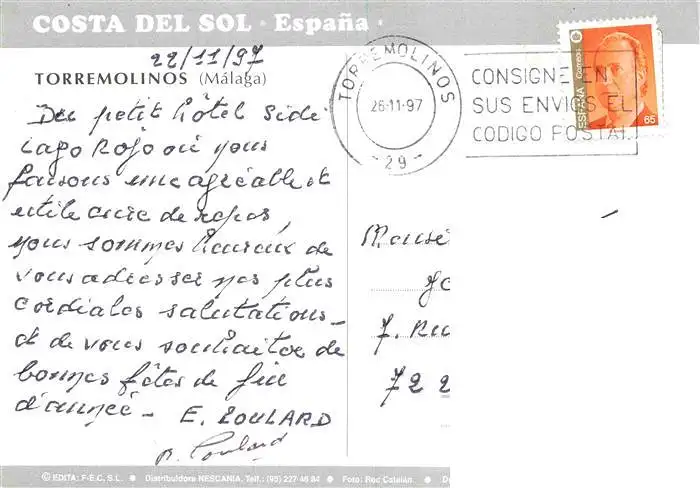 COSTA DEL SOL · España ·
22/11/97
TORREMOLINOS (Málaga)
Du petit hôtel Side
Lago Rojo où nous
faisons une agréable et
utile cure de repos,
nous sommes heureux de
vous adresser nos plus
cordiales salutations -
et de vous souhaiter de
bonnes fêtes de fin
d'année - E. ROULARD
TORREMOLINOS
26-11-97
- 29 -
CONSIGNE EN
SUS ENVIOS EL
CODIGO POSTAL
ESPAÑA Correos
65
7. Rue
72 2
© EDITA: F-E.C, S.L. ● Distribuidora NESCANIA, Telf.: (95) 227 46 84 ● Foto: Roc Catalán ● D